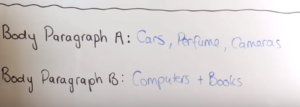 Body Paragraph A: Cars, Perfume, Cameras
Body Paragraph B: Computers + Books